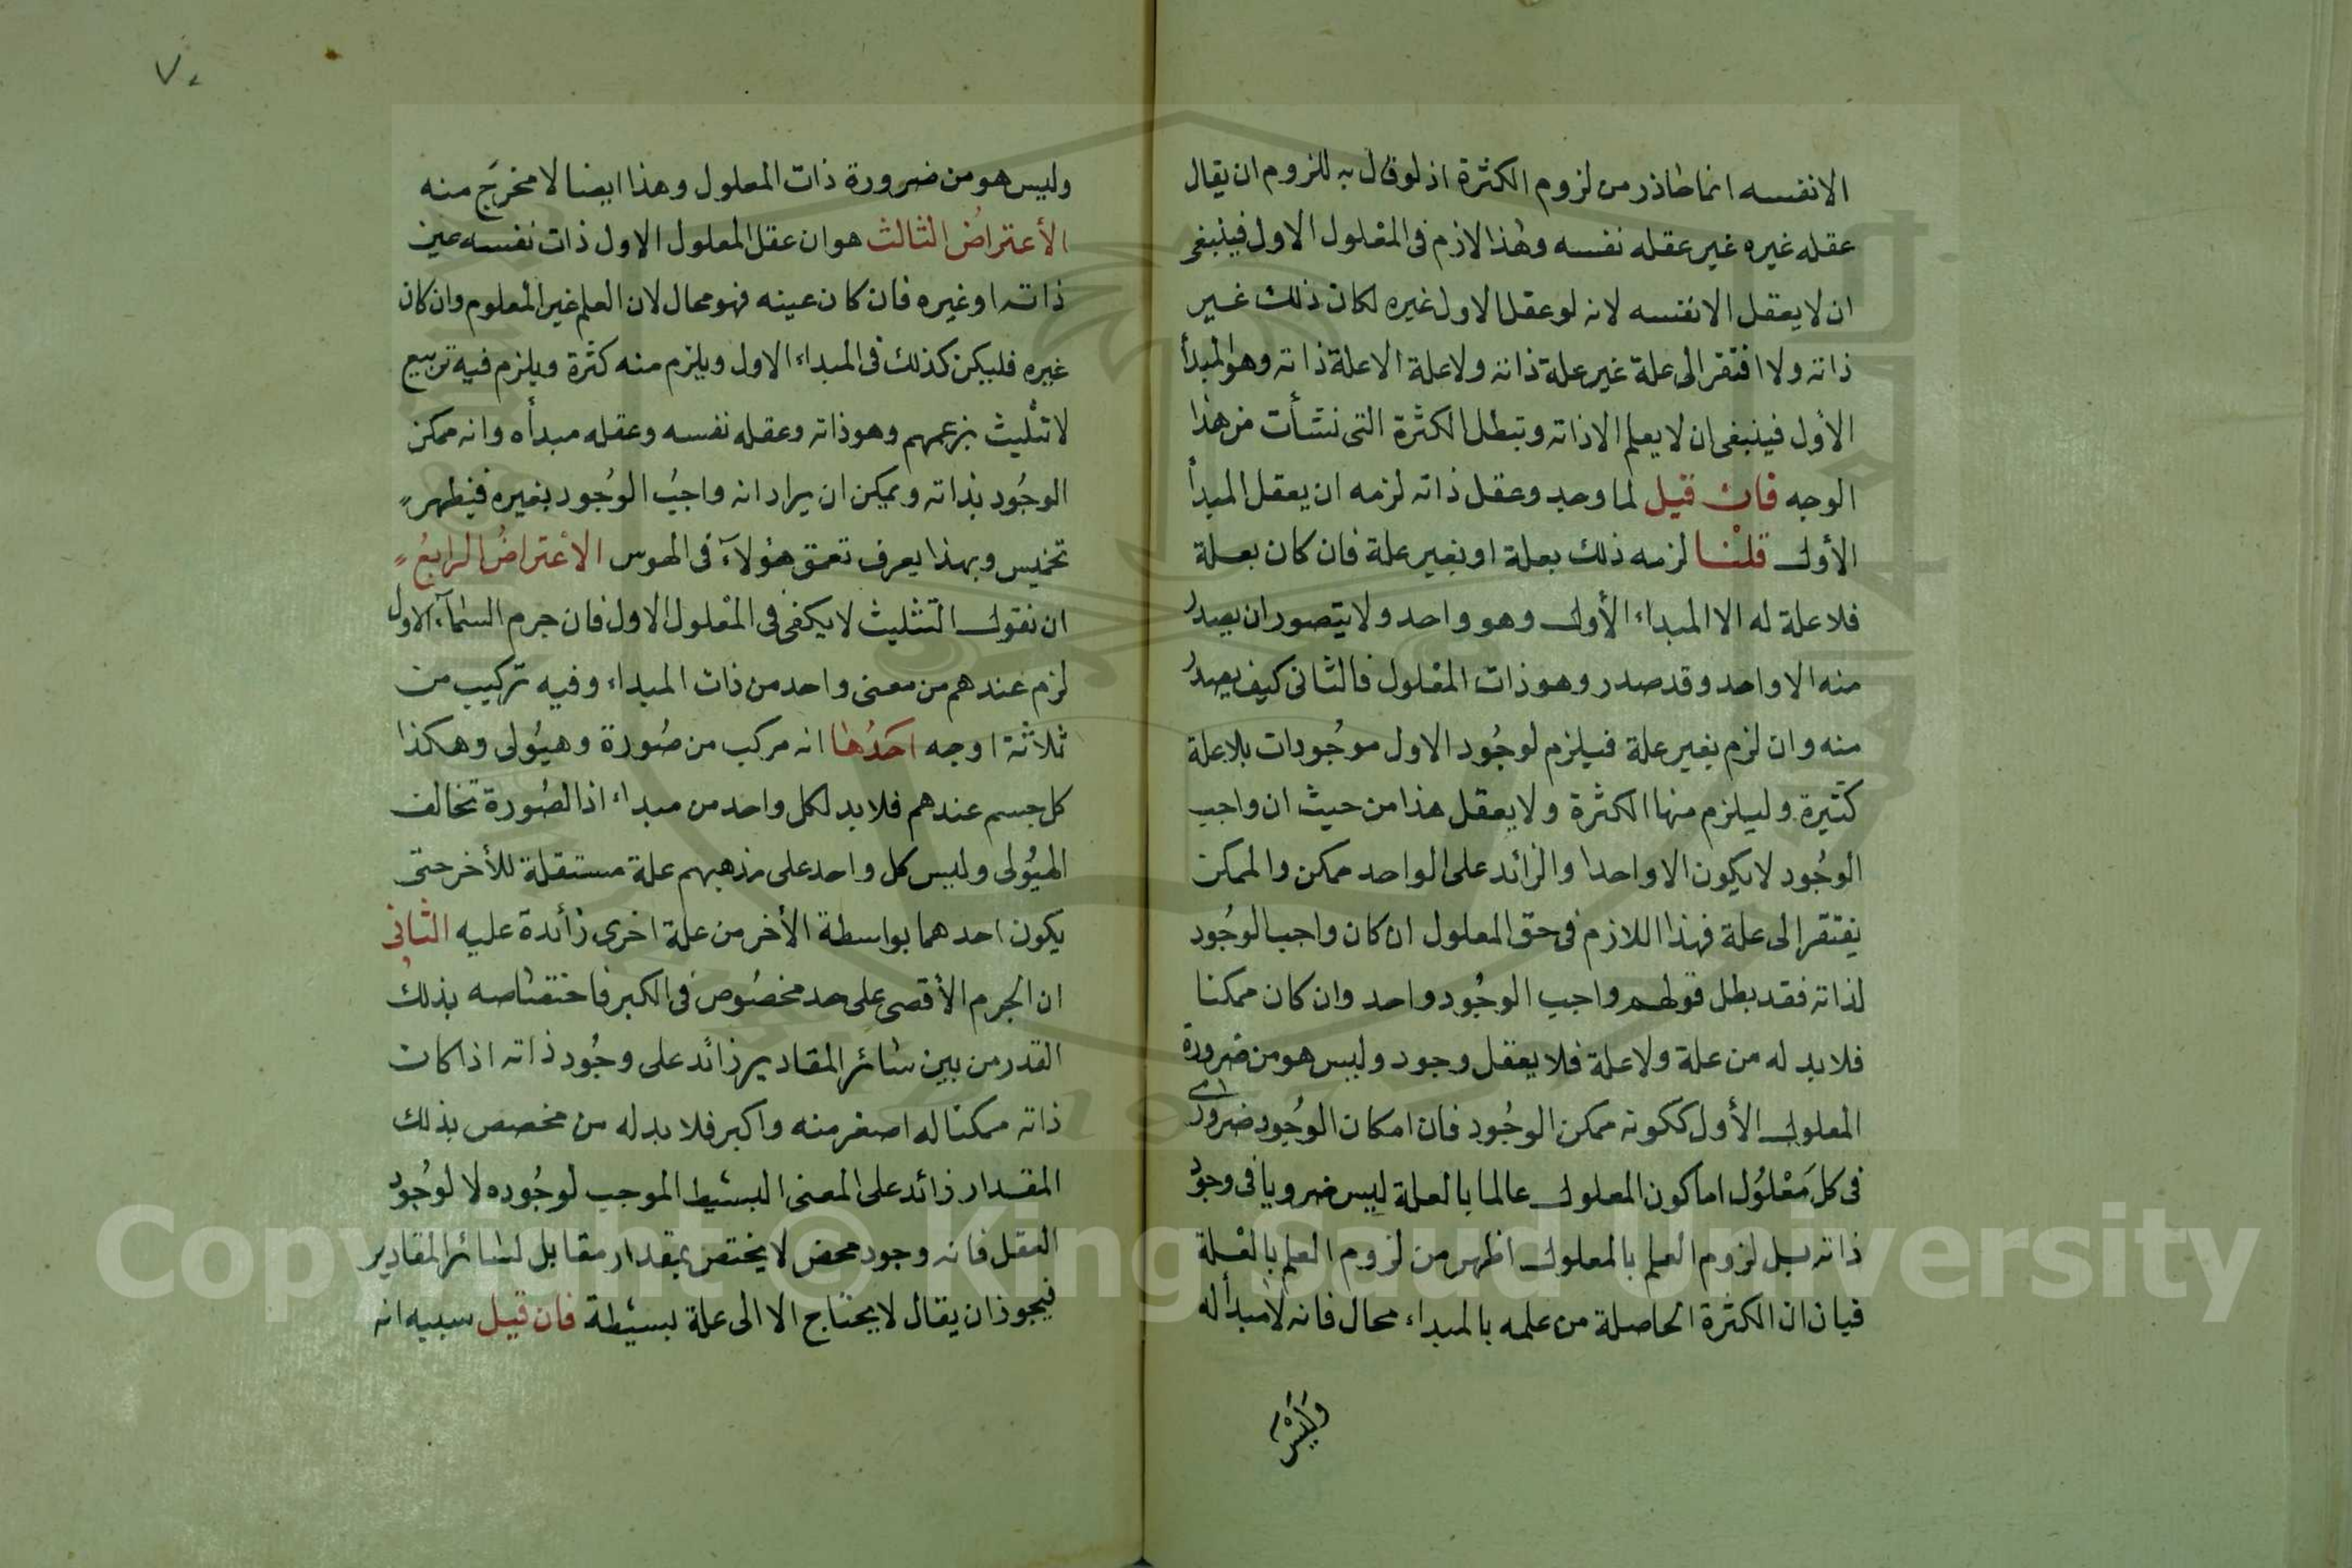 الانفسه انما حاذر من لزوم الكثرة اذ لو قال به للزوم ان يقال
عقله غيره غير عقله نفسه وهذا لازم فى المعلول الاول فينبغى
ان لا يعقل الا نفسه لانه لو عقل الاول غيره لكان ذلك غير
ذاته ولا افتقر الى علة غير علة ذاته ولا علة الا علة ذاته وهو المبدأ
الأول فينبغى ان لا يعلم الا ذاته وتبطل الكثرة التى نشأت من هذا
الوجه فان قيل لما وجد وعقل ذاته لزمه ان يعقل المبدأ
الأول قلنا لزمه ذلك بعلة او بغير علة فان كان بعلة
فلا علة له الا المبداء الأول وهو واحد ولا يتصور ان يصدر
منه الا واحد وقد صدر وهو ذات المعلول فالثانى كيف يصدر
منه وان لزم بغير علة فيلزم لوجُود الاول موجُودات بلا علة
كثيرة وليلزم منها الكثرة ولا يعقل هذا من حيث ان واجب
الوجُود لا يكون الا واحدا والزائد على الواحد ممكن والممكن
يفتقر الى علة فهذا اللازم فى حق المعلول ان كان واجب الوجُود
لذاته فقد بطل قولهم واجب الوجُود واحد وان كان ممكنا
فلا بد له من علة ولا علة فلا يعقل وجود وليس هو من ضرورة
المعلول الأول ككونه ممكن الوجُود فان امكان الوجُود ضرورى
فى كل مَعْلوُل اما كون المعلول عالما بالعلة ليس ضرويا فى وجود
ذاته بل لزوم العلم بالمعلول اظهر من لزوم العلم بالعلة
فبان ان الكثرة الحاصلة من علمه بالمبداء محال فانه لا مبدأ له
وَلَيْسَ
٧٠
وليس هو من ضرورة ذات المعلول وهذا ايضا لا مخرَج منه
الأعتراضُ الثالث هو ان عقل المعلول الاول ذات نفسه عين
ذاته او غيره فان كان عينه فهو محال لان العلم غير المعلوم وان كان
غيره فليكن كذلك فى المبداء الاول ويلزم منه كثرة ويلزم فيه تربيع
لا تثليث بزعمهم وهو ذاته وعقله نفسه وعقله مبدأه وانه ممكن
الوجُود بذاته ويمكن ان يراد انه واجبُ الوجُود بغيره فيظهر
تخميس وبهذا يعرف تعمق هؤلآء فى الهوس الاعتراضُ الرابعُ
ان نقول التثليث لا يكفى فى المعلول الاول فان جرم السمآء الاول
لزم عندهم من معنى واحد من ذات المبداء وفيه تركيب من
ثلاثة اوجه احَدُها انه مركب من صُورة وهيُولى وهكذا
كل جسم عندهم فلا بد لكل واحد من مبداء اذ الصُورة تخالف
الهيُولى وليس كل واحد على مذهبهم علة مستقلة للأخر حتى
يكون احدهما بواسطة الأخر من علة اخرى زائدة عليه الثانى
ان الجرم الأقصى على حد مخصُوص فى الكبر فاختصاصه بذلك
القدر من بين سائر المقادير زائد على وجُود ذاته اذا كان
ذاته ممكنا له اصغر منه واكبر فلا بد له من مخصص بذلك
المقدار زائد على المعنى البسيط الموجب لوجُوده لا لوجُود
العقل فانه وجود محض لا يختص بمقدار مقابل لسائر المقادير
فيجوز ان يقال لا يحتاج الا الى علة بسيطة فان قيل سببه انه
Copyright © King Saud University